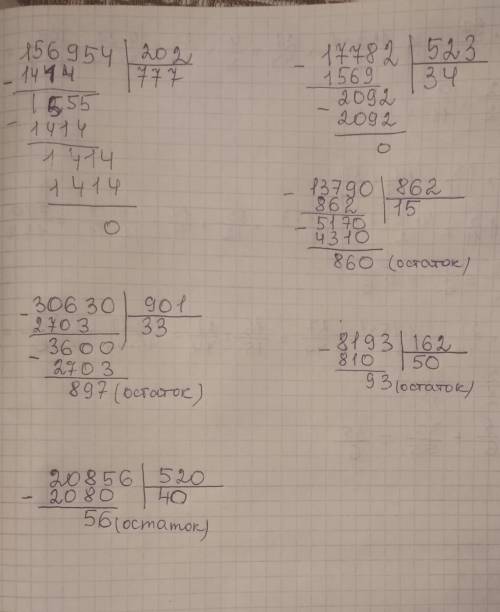 156954 | 202
- 1414 777
1555
- 1414
1414
1414
0
- 17782 | 523
1569 34
- 2092
2092
0
- 13790 | 862
862 15
- 5170
4310
860 (остаток)
- 30630 | 901
2703 33
- 3600
2703
897 (остаток)
- 8193 | 162
810 50
93 (остаток)
20856 | 520
- 2080 40
56 (остаток)